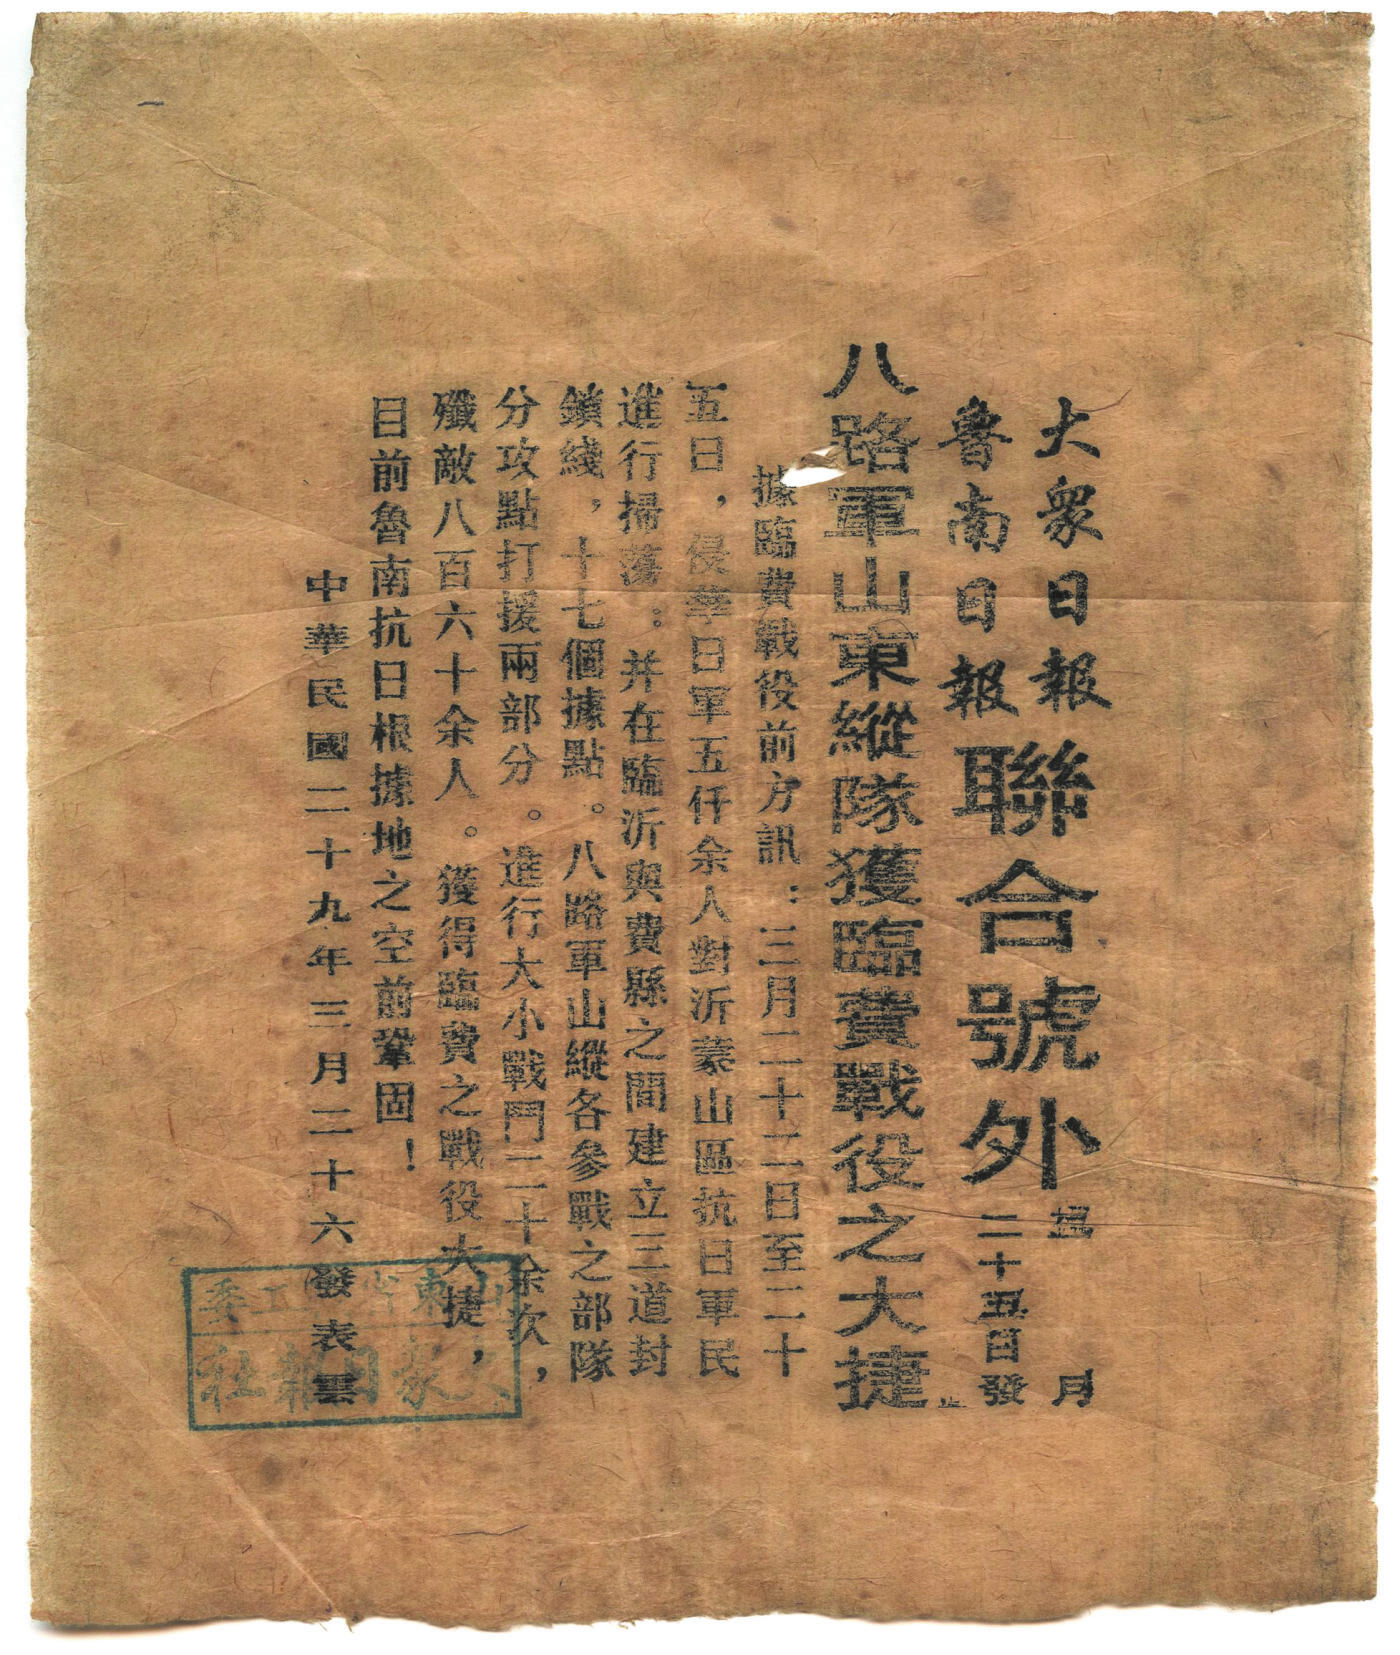 大衆日報
魯南日報
聯合號外
月
二十五日發
八路軍山東縱隊獲臨費戰役之大捷
據臨費戰役前方訊：三月二十二日至二十
五日，侵華日軍五仟余人對沂蒙山區抗日軍民
進行掃蕩。并在臨沂與費縣之間建立三道封
鎖綫，十七個據點。八路軍山縱各參戰之部隊
分攻點打援兩部分。進行大小戰鬥二十余次，
殲敵八百六十余人。獲得臨費之戰役大捷，
目前魯南抗日根據地之空前鞏固！
中華民國二十九年三月二十六發表
山東省工委
大衆日報社